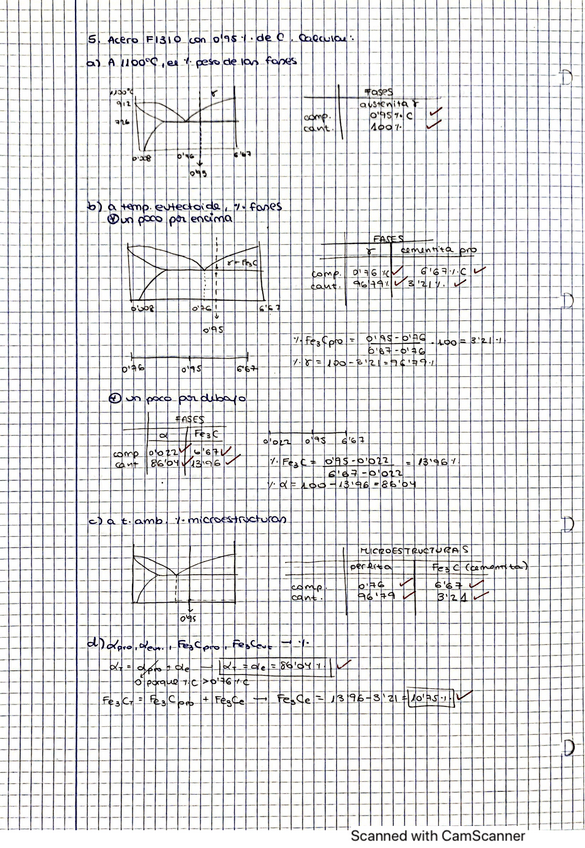 5. Acero F1310 con 0'95 % de C. Calcular:
a) A 1100°C, el % peso de las fases
1100°C
912
726
γ
0'008
0'76
6'67
0'95
FASES
austenita γ
comp. 0'95 % C
cant. 100%
b) a temp. eutectoide, % fases
un poco por encima
γ+Fe3C
0'008
0'76
6'67
0'95
FASES
γ cementita pro
comp. 0'76 %C 6'67 % C
cant. 96'79% 3'21 %
0'76 0'95 6'67
% Fe3Cpro = 0'95-0'76 / 6'67-0'76 · 100 = 3'21 %
% γ = 100 - 3'21 = 96'79 %
un poco por debajo
FASES
α Fe3C
comp 0'022 6'67
cant 86'04 13'96
0'022 0'95 6'67
% Fe3C = 0'95-0'022 / 6'67-0'022 = 13'96 %
% α = 100 - 13'96 = 86'04
c) a t. amb. % microestructuras
0'95
MICROESTRUCTURAS
perlita Fe3C (cementita)
comp. 0'76 6'67
cant. 96'79 3'21
d) αpro, αeut, Fe3Cpro, Fe3Ceut → %
αT = αpro = αe → αT = αe = 86'04 %
0 porque % C > 0'76 % C
Fe3CT = Fe3Cpro + Fe3Ce → Fe3Ce = 13'96 - 3'21 = 10'75 %
Scanned with CamScanner